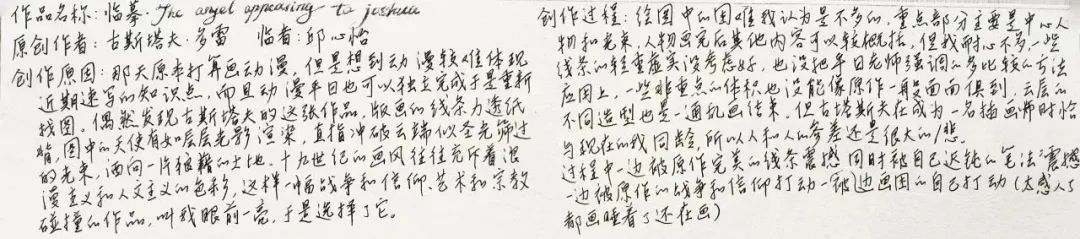 作品名称：临摹·The angel appearing to joshua
原创作者：古斯塔夫·多雷 临者：邱心怡
创作原因：那天原本打算画动漫，但是想到动漫较难体现
近期速写的知识点，而且动漫平日也可以独立完成于是重新
找图。偶然发现古斯塔夫的这张作品。版画的线条力透纸
背，图中的天使有如层层光影渲染，直指冲破云端似圣光筛过
的光束，洒向一片狼藉的土地。十九世纪的画风往往充斥着浪
漫主义和人文主义的色彩，这样一幅战争和信仰、艺术和宗教
碰撞的作品，叫我眼前一亮，于是选择了它。
创作过程：绘图中的困难我认为是不多的，重点部分主要是中心人
物和光束，人物画完后其他内容可以较概括，但我耐心不多，一些
线条的轻重虚实没考虑好，也没把平日老师强调的多比较的方法
应用上，一些非重点的体积也没能像原作一般面面俱到，云层的
不同造型也是一通乱画结束。但古塔斯夫在成为一名插画师时恰
与现在的我同龄，所以人和人的参差还是很大的/悲。
过程中一边被原作完美的线条震撼同时被自己迟钝的笔法震撼
一边被原作的战争和信仰打动一边被画困的自己打动（太感人了
都画睡着了还在画）